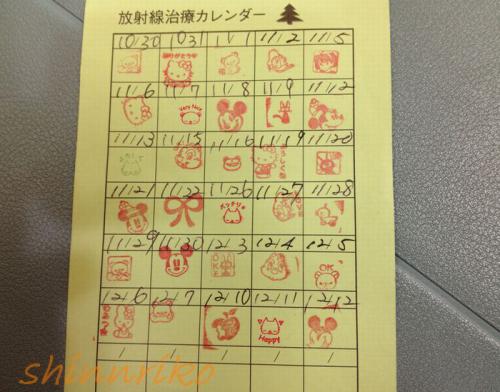 放射線治療カレンダー
10/30 10/31 11/1 11/2 11/5
ありがとう
11/6 11/7 11/8 11/9 11/12
Very Nice
11/13 11/15 11/16 11/19 11/20
よろしくね
11/21 11/22 11/26 11/27 11/28
11/29 11/30 12/3 12/4 12/5
OK
OK
12/6 12/7 12/10 12/11 12/12
Happy!
/ / / / /
shinnriko